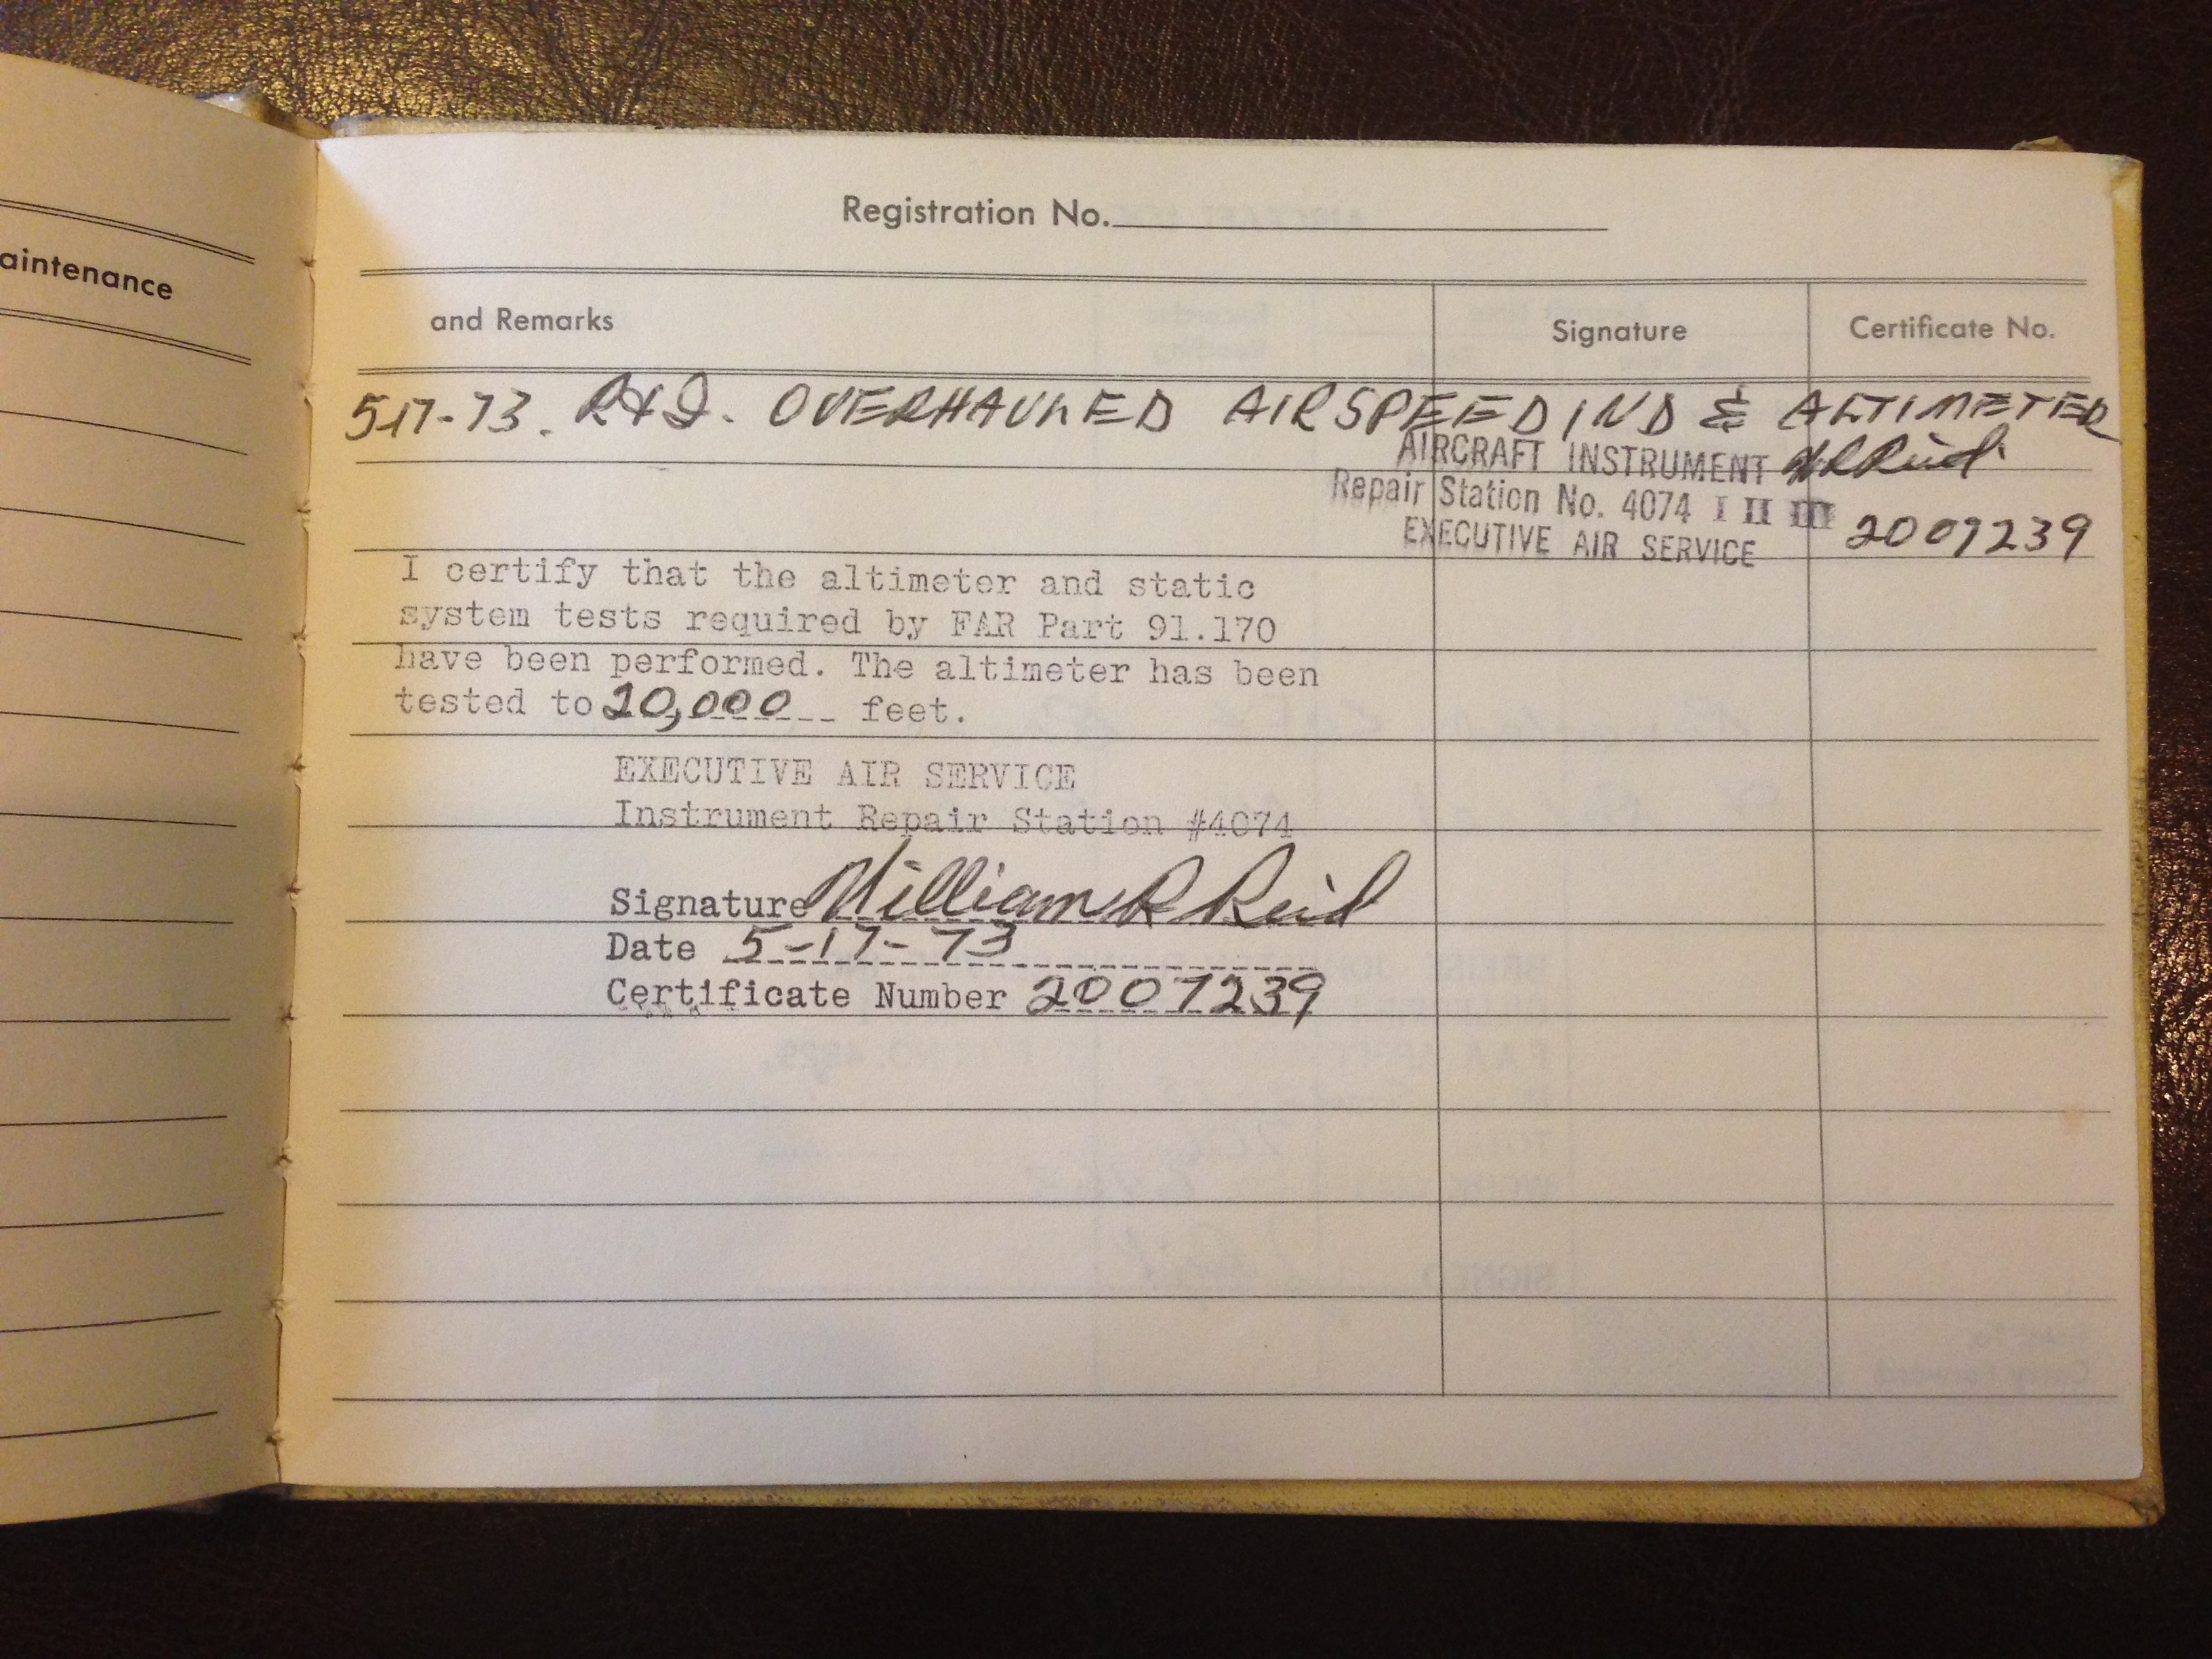 aintenance
Registration No.
and Remarks Signature Certificate No.
5-17-73. R&I. OVERHAULED AIRSPEED IND & ALTIMETER
AIRCRAFT INSTRUMENT WRReid
Repair Station No. 4074 I II III
EXECUTIVE AIR SERVICE 2007239
I certify that the altimeter and static
system tests required by FAR Part 91.170
have been performed. The altimeter has been
tested to 20,000 feet.
EXECUTIVE AIR SERVICE
Instrument Repair Station #4074
Signature William R Reid
Date 5-17-73
Certificate Number 2007239